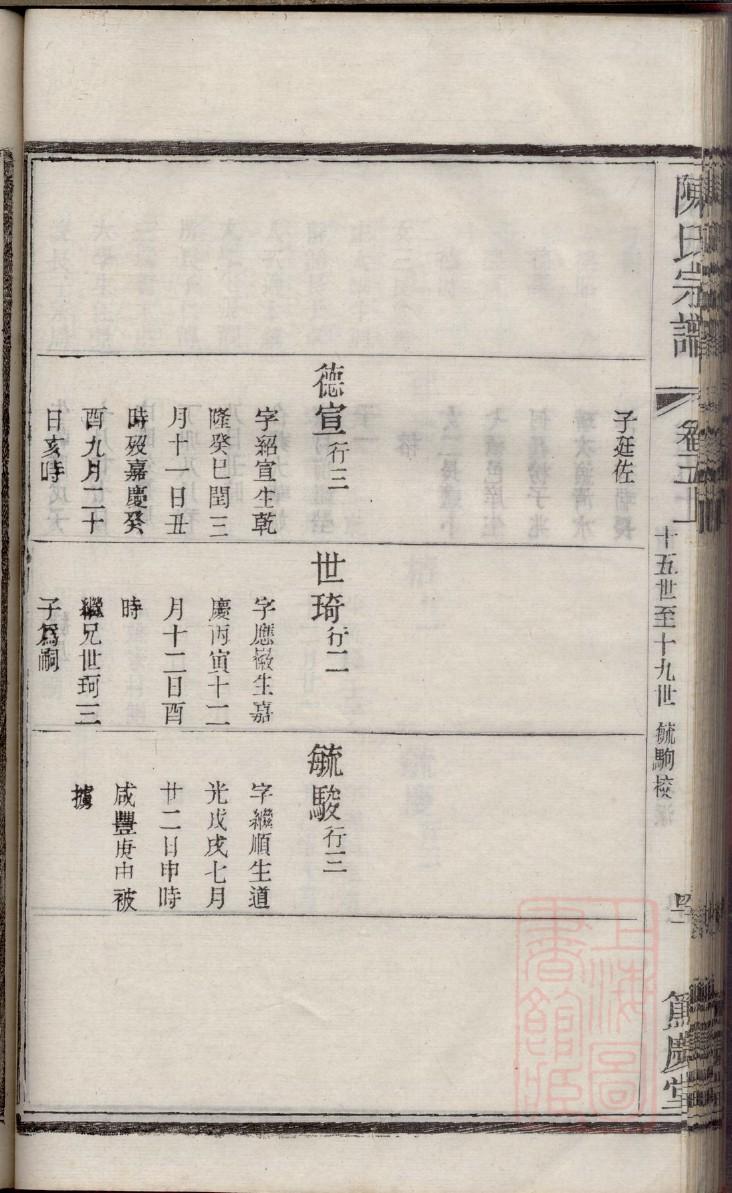 陳氏宗譜
十五世至十九世 毓駒校
篤慶堂
子廷佐
德宣行三
字紹宣生乾
隆癸巳閏三
月十一日丑
時歿嘉慶癸
酉九月二十
日亥時
世琦行二
字應徵生嘉
慶丙寅十二
月十二日酉
時
繼兄世珂三
子為嗣
毓駿行三
字繼順生道
光戊戌七月
廿二日申時
咸豐庚申被
擄
上海圖
書館藏